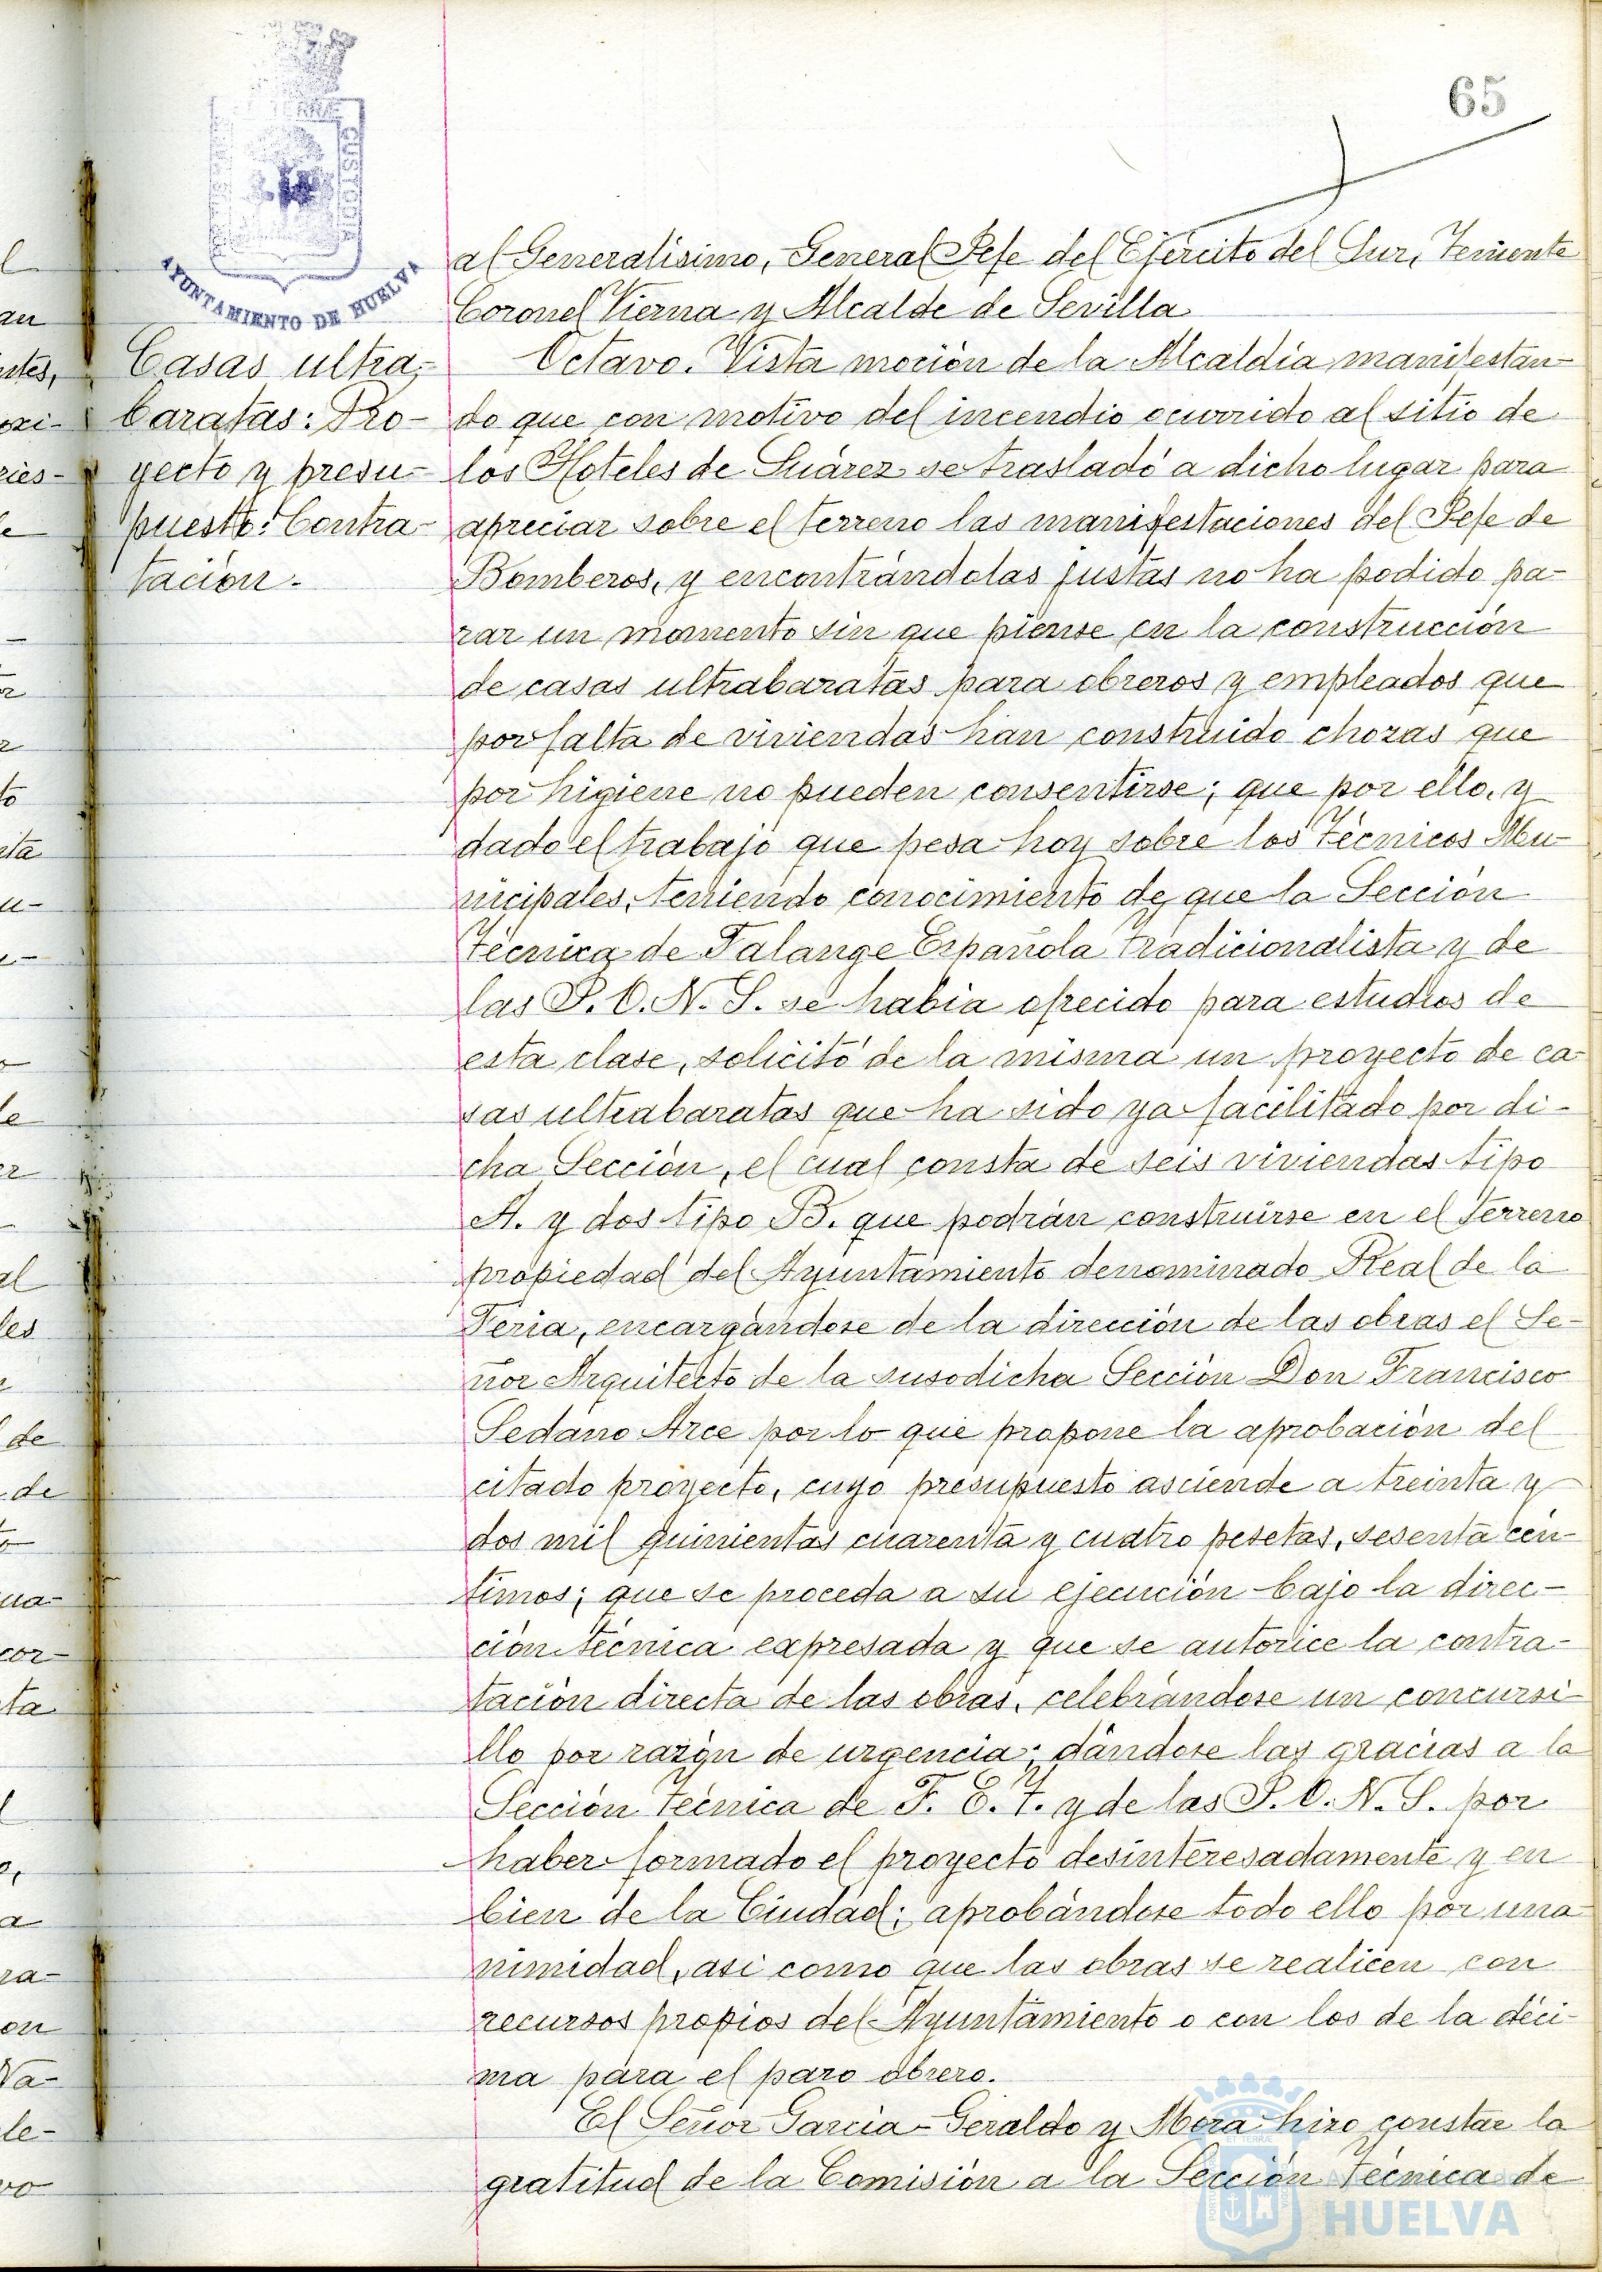 65
TERRÆ
CUSTODIA
AYUNTAMIENTO DE HUELVA
Casas ultra-
baratas: Pro-
yecto y presu-
puesto: Contra-
tación.
al Generalísimo, General Jefe del Ejército del Sur, Teniente
Coronel Vierna y Alcalde de Sevilla
Octavo. Vista moción de la Alcaldía manifestan-
do que con motivo del incendio ocurrido al sitio de
los Hoteles de Suárez se trasladó a dicho lugar para
apreciar sobre el terreno las manifestaciones del Jefe de
Bomberos, y encontrándolas justas no ha podido pa-
rar un momento sin que piense en la construcción
de casas ultrabaratas para obreros y empleados que
por falta de viviendas han construido chozas que
por higiene no pueden consentirse; que por ello, y
dado el trabajo que pesa hoy sobre los Técnicos Mu-
nicipales, teniendo conocimiento de que la Sección
Técnica de Falange Española Tradicionalista y de
las J.O.N.S. se había ofrecido para estudios de
esta clase, solicitó de la misma un proyecto de ca-
sas ultrabaratas que ha sido ya facilitado por di-
cha Sección, el cual consta de seis viviendas tipo
A. y dos tipo B. que podrán construirse en el terreno
propiedad del Ayuntamiento denominado Real de la
Feria, encargándose de la dirección de las obras el Se-
ñor Arquitecto de la susodicha Sección Don Francisco
Sedano Arce por lo que propone la aprobación del
citado proyecto, cuyo presupuesto asciende a treinta y
dos mil quinientas cuarenta y cuatro pesetas, sesenta cén-
timos; que se proceda a su ejecución bajo la direc-
ción técnica expresada y que se autorice la contra-
tación directa de las obras, celebrándose un concursi-
llo por razón de urgencia; dándose las gracias a la
Sección Técnica de F. E. T. y de las J.O.N.S. por
haber formado el proyecto desinteresadamente y en
bien de la Ciudad; aprobándose todo ello por una-
nimidad, así como que las obras se realicen con
recursos propios del Ayuntamiento o con los de la déci-
ma para el paro obrero.
El Señor García-Geraldo y Mora hizo constar la
gratitud de la Comisión a la Sección Técnica de
HUELVA